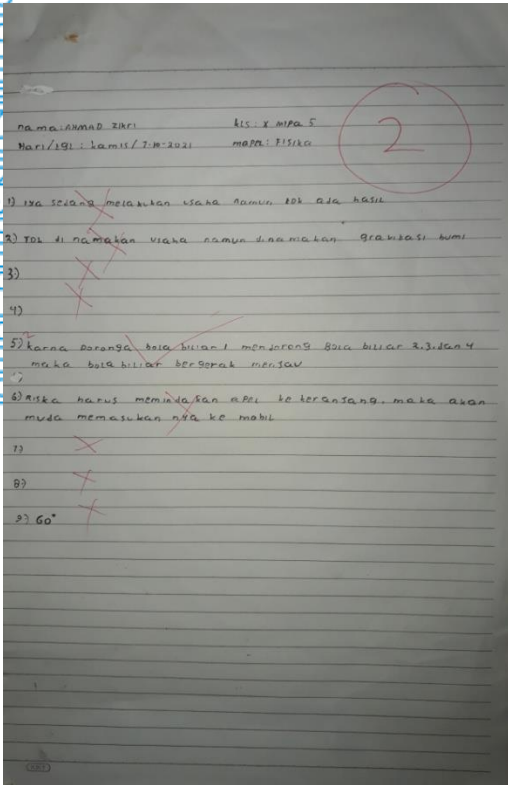 nama: AHMAD Zikri
kls: X MIPA 5
Hari/tgl: kamis/7-10-2021
mapel: Fisika
2
1) iya sedang melakukan usaha namun tdk ada hasil
2) TDK di namakan usaha namun dinamakan grabikasi bumi
3)
4)
2
5) karna doronga bola biliar 1 mendorong bola biliar 2.3.dan 4
maka bola biliar bergerak menjau
6) Riska harus memindakan apel ke keranjang. maka akan
muda memasukan nya ke mobil
7)
8)
9) 60°